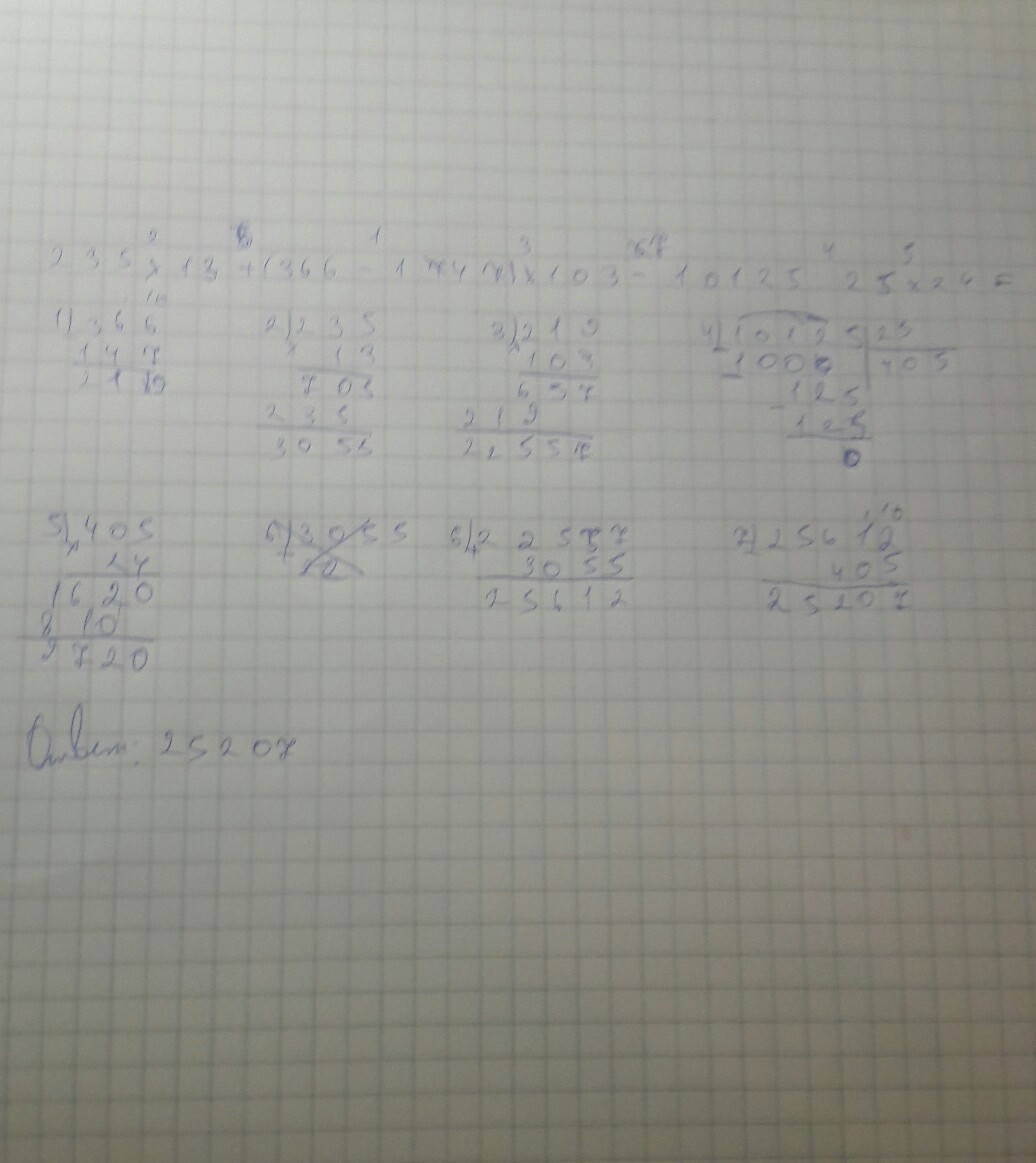 2 3 5 x 13 + (366 - 147) x 103 - 10125 25 x 24 =
1) 366 2) 235 3) 219 4) 10125 25
147 x 13 x 103 1000 405
219 705 657 125
235 219 125
3055 22557 0
5) 405 6) 3055 6) 22557 7) 25612
x 24 3055 405
1620 25612 25207
810
9720
Ответ: 25207